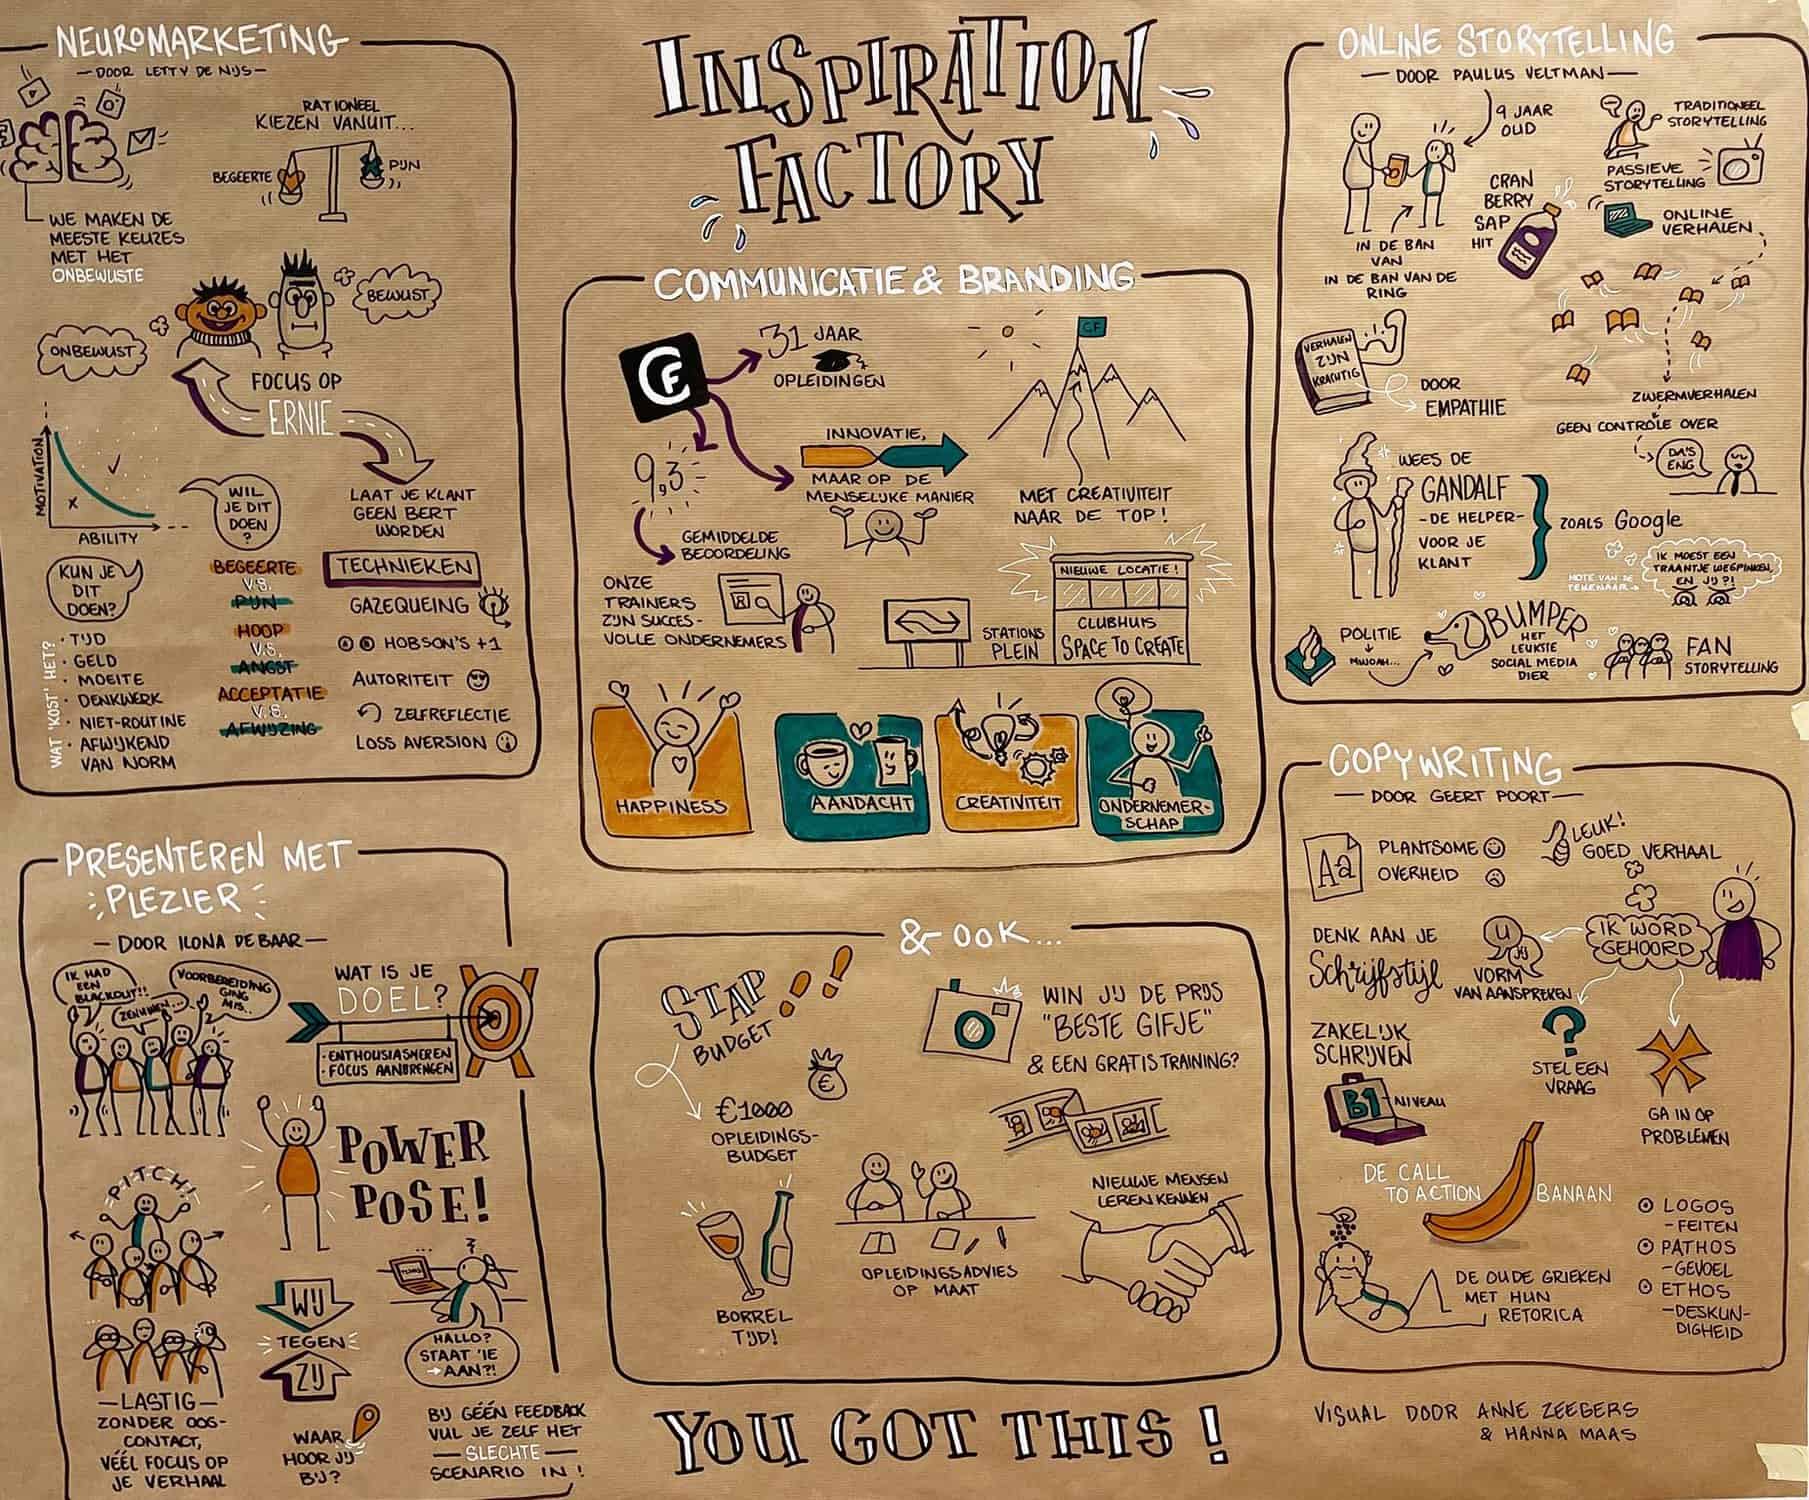 INSPIRATION
FACTORY
NEUROMARKETING
DOOR LETTY DE NIJS
RATIONEEL
KIEZEN VANUIT...
BEGEERTE
PIJN
WE MAKEN DE
MEESTE KEUZES
MET HET
ONBEWUSTE
BEWUST
ONBEWUST
FOCUS OP
ERNIE
MOTIVATION
ABILITY
WIL
JE DIT
DOEN
?
LAAT JE KLANT
GEEN BERT
WORDEN
KUN JE
DIT
DOEN?
WAT 'KOST' HET?
• TIJD
• GELD
• MOEITE
• DENKWERK
• NIET-ROUTINE
• AFWIJKEND
VAN NORM
BEGEERTE
V.S.
PIJN
HOOP
V.S.
ANGST
ACCEPTATIE
V.S.
AFWIJZING
TECHNIEKEN
GAZEQUEING
HOBSON'S +1
AUTORITEIT
ZELFREFLECTIE
LOSS AVERSION
COMMUNICATIE & BRANDING
CF
31 JAAR
OPLEIDINGEN
9,3
GEMIDDELDE
BEOORDELING
INNOVATIE,
MAAR OP DE
MENSELIJKE MANIER
CF
MET CREATIVITEIT
NAAR DE TOP!
ONZE
TRAINERS
ZIJN SUCCES-
VOLLE ONDERNEMERS
STATIONS
PLEIN
NIEUWE LOCATIE!
CLUBHUIS
SPACE TO CREATE
HAPPINESS
AANDACHT
CREATIVITEIT
ONDERNEMER-
SCHAP
ONLINE STORYTELLING
DOOR PAULUS VELTMAN
9 JAAR
OUD
IN DE BAN
VAN
IN DE BAN VAN DE
RING
CRAN
BERRY
SAP
HIT
TRADITIONEEL
STORYTELLING
PASSIEVE
STORYTELLING
ONLINE
VERHALEN
ZWERMVERHALEN
GEEN CONTROLE OVER
DA'S
ENG
VERHALEN
ZIJN
KRACHTIG
DOOR
EMPATHIE
WEES DE
GANDALF
-DE HELPER-
VOOR JE
KLANT
ZOALS Google
NOTE VAN DE
TEKENAAR
IK MOEST EEN
TRAANTJE WEGPINKEN,
EN JIJ?!
POLITIE
MWOAH...
BUMPER
HET
LEUKSTE
SOCIAL MEDIA
DIER
FAN
STORYTELLING
PRESENTEREN MET
PLEZIER
DOOR ILONA DE BAAR
IK HAD
EEN
BLACKOUT!!
ZENUWEN...
VOORBEREIDING
GING
MIS..
WAT IS JE
DOEL?
• ENTHOUSIASMEREN
• FOCUS AANBRENGEN
POWER
POSE!
PITCH!
LASTIG
ZONDER OOG-
CONTACT,
VÉÉL FOCUS OP
JE VERHAAL
WIJ
TEGEN
ZIJ
WAAR
HOOR JIJ
BIJ?
HALLO?
STAAT 'IE
AAN?!
BIJ GÉÉN FEEDBACK
VUL JE ZELF HET
SLECHTE
SCENARIO IN!
& OOK...
STAP
BUDGET
€1000
OPLEIDINGS-
BUDGET
€
WIN JIJ DE PRIJS
"BESTE GIFJE"
& EEN GRATIS TRAINING?
BORREL
TIJD!
OPLEIDINGSADVIES
OP MAAT
NIEUWE MENSEN
LEREN KENNEN
COPYWRITING
DOOR GEERT POORT
Aa
PLANTSOME
OVERHEID
LEUK!
GOED VERHAAL
DENK AAN JE
Schrijfstijl
U
JIJ
VORM
VAN AANSPREKEN
IK WORD
GEHOORD
ZAKELIJK
SCHRIJVEN
B1 - NIVEAU
?
STEL EEN
VRAAG
GA IN OP
PROBLEMEN
DE CALL
TO ACTION
BANAAN
DE OUDE GRIEKEN
MET HUN
RETORICA
LOGOS
-FEITEN
PATHOS
-GEVOEL
ETHOS
-DESKUN-
DIGHEID
YOU GOT THIS!
VISUAL DOOR ANNE ZEEGERS
& HANNA MAAS